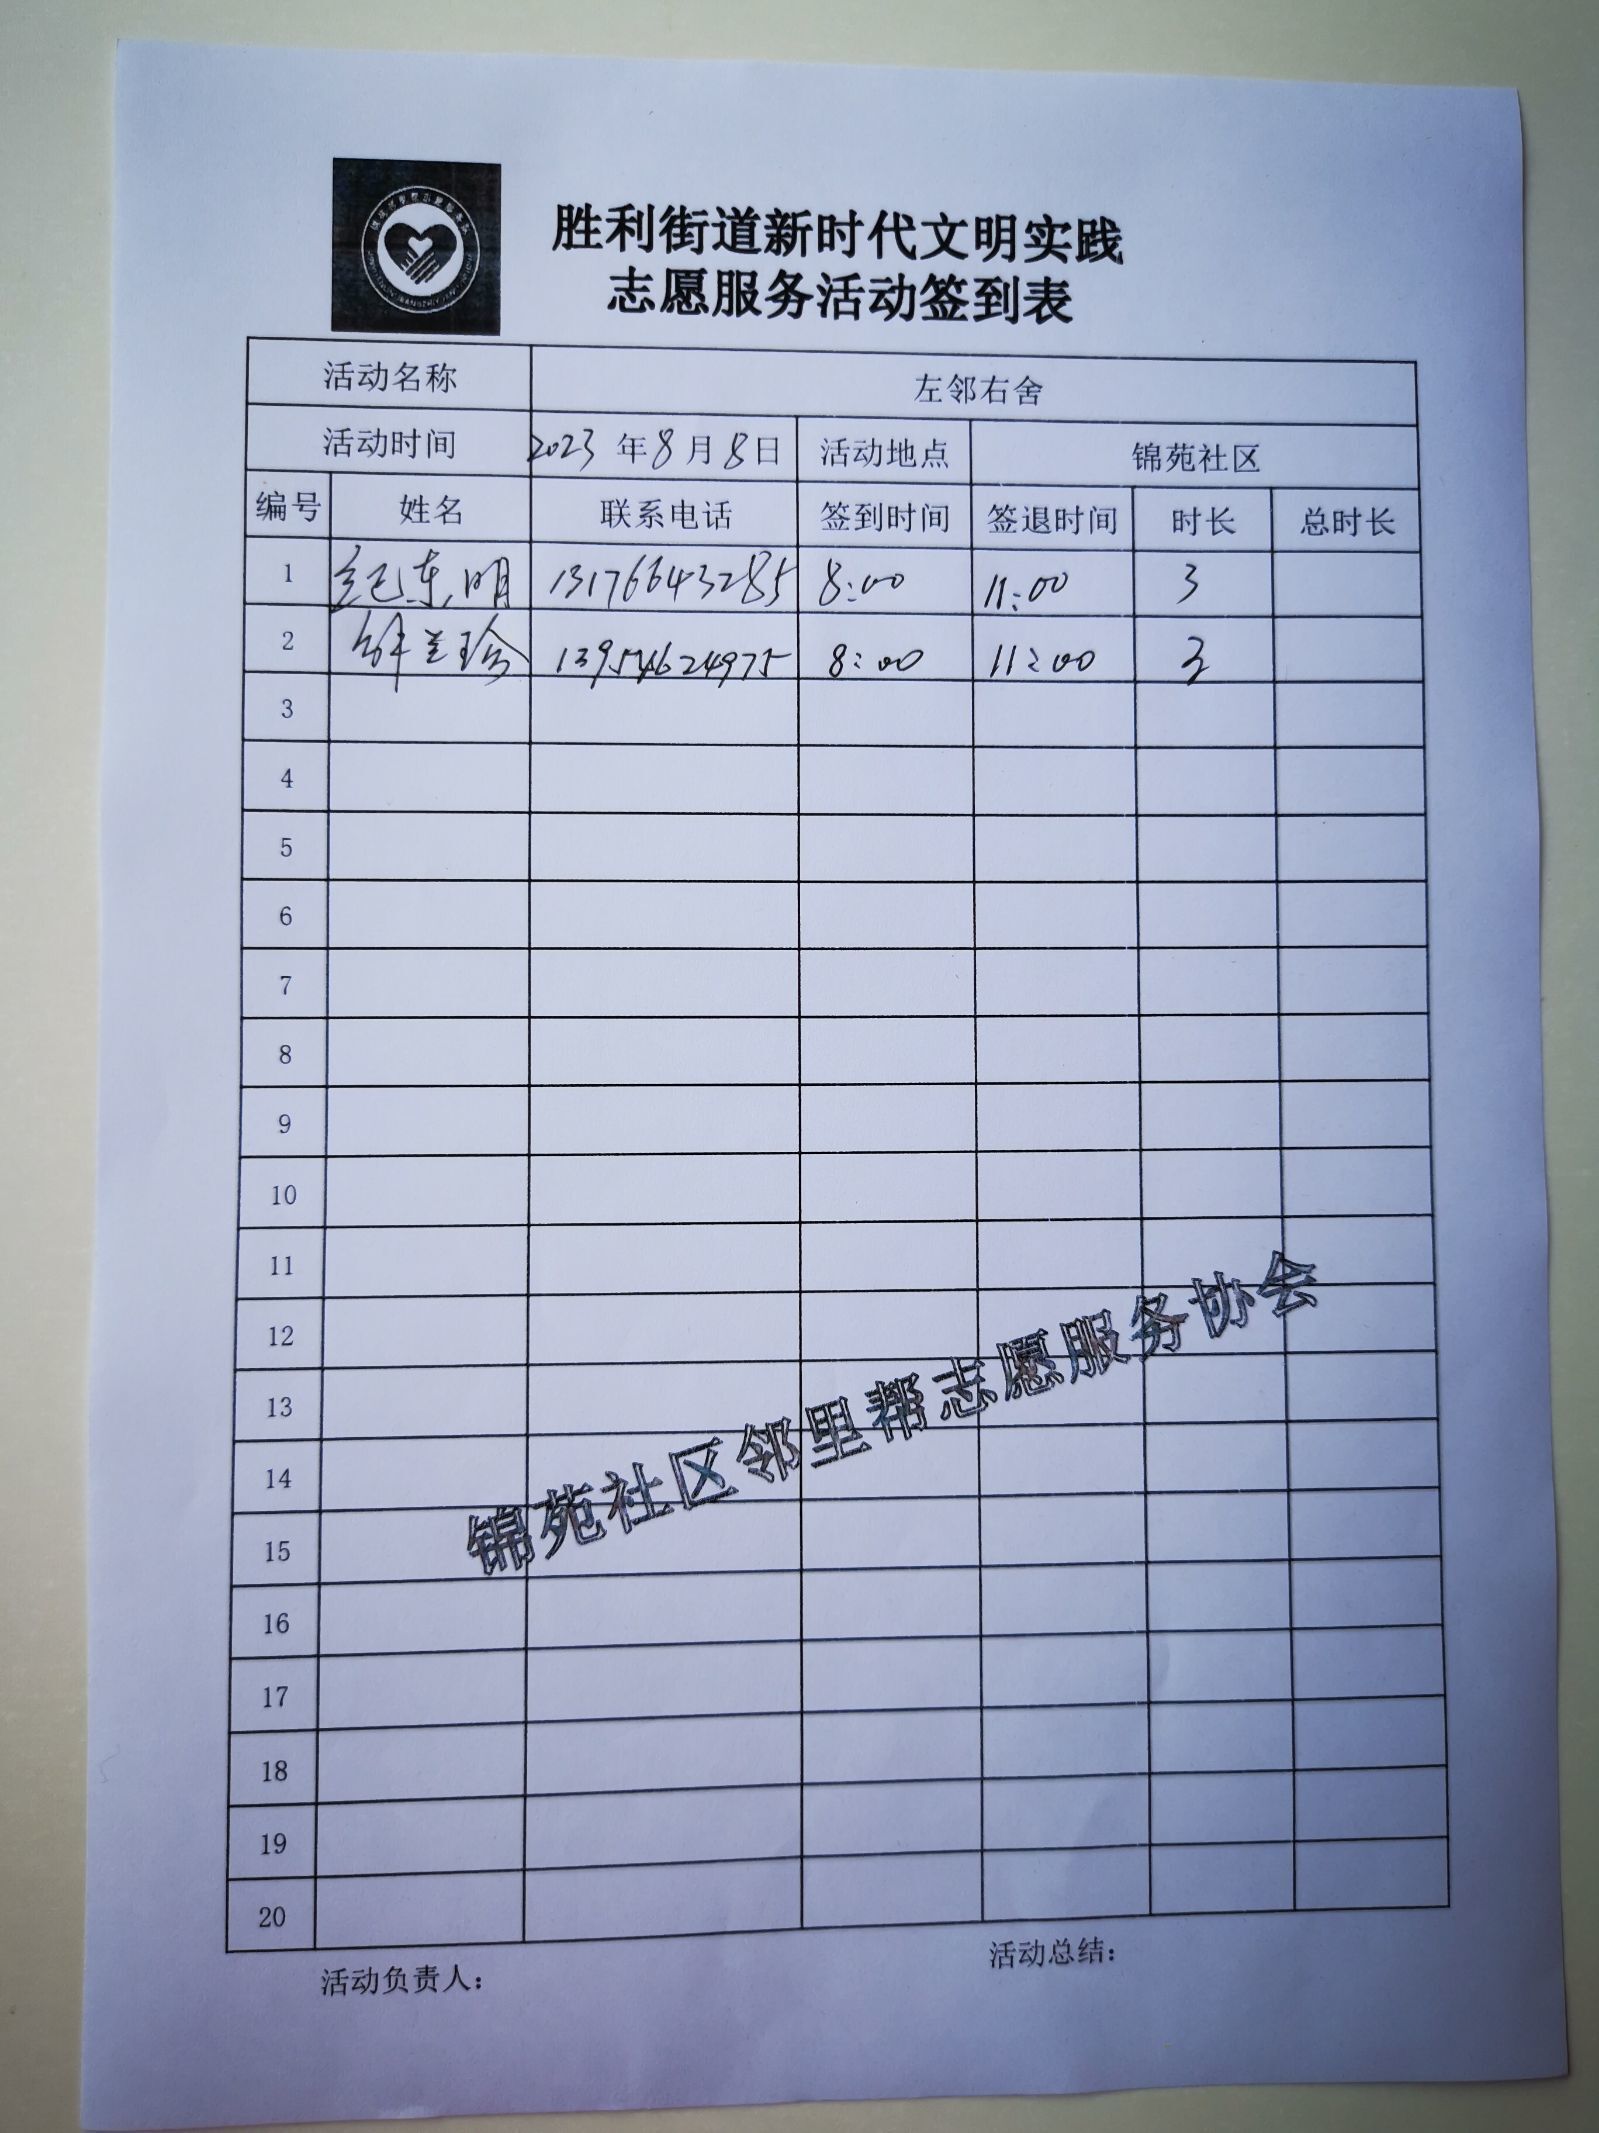 胜利街道新时代文明实践
志愿服务活动签到表
活动名称 左邻右舍
活动时间 2023 年 8 月 8 日 活动地点 锦苑社区
编号 姓名 联系电话 签到时间 签退时间 时长 总时长
1 纪东明 13176643285 8:00 11:00 3
2 兰珍 13954624975 8:00 11:00 3
3
4
5
6
7
8
9
10
11
12
13
14
15
16
17
18
19
20
锦苑社区邻里帮志愿服务协会
活动负责人: 活动总结: